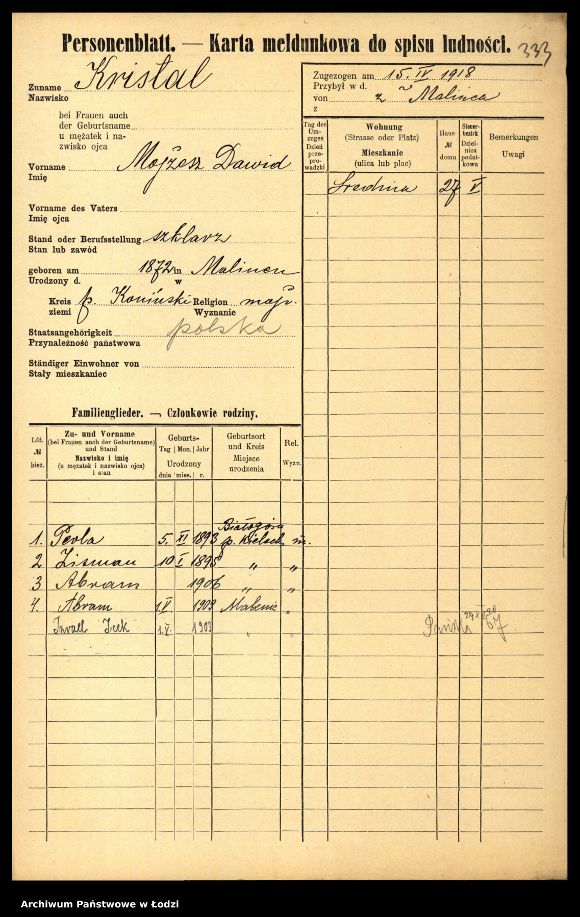 Personenblatt. — Karta meldunkowa do spisu ludności.
333
Zuname
Nazwisko
Kristal
bei Frauen auch
der Geburtsname
u mężatek i na-
zwisko ojca
Vorname
Imię
Mojżesz Dawid
Vorname des Vaters
Imię ojca
Stand oder Berufsstellung szklarz
Stan lub zawód
geboren am 1872 in
Urodzony d. w
Kreis p. Koniński Religion mojż.
ziemi Wyznanie
Staatsangehörigkeit polska
Przynależność państwowa
Ständiger Einwohner von
Stały mieszkaniec
Zugezogen am 15. IV 1918
Przybył w d.
von
z
z Malińca
Tag des
Um-
zuges
Dzień
prze-
pro-
wadzki
Wohnung
(Strasse oder Platz)
Mieszkanie
(ulica lub plac)
Haus-
№
domu
Steuer-
bezirk
Dziel-
nica
podat-
kowa
Bemerkungen
Uwagi
Średnia 27 V
Familienglieder. — Członkowie rodziny.
Lfd.
№
bież.
Zu- und Vorname
(bei Frauen auch der Geburtsname)
und Stand
Nazwisko i imię
(u mężatek i nazwisko ojca)
i stan
Geburts-
Tag Mon. Jahr
Urodzony
dnia mies. r.
Geburtsort
und Kreis
Miejsce
urodzenia
Rel.
Wyzn.
1. Perla 5. XI 1893 p. Kielech m.
2 Zisman 10 I 1895 " "
3 Abram 1906 " "
4. Abram 1 V 1909 "
Izrael Icek 1. V. 1903 " "
67
Archiwum Państwowe w Łodzi